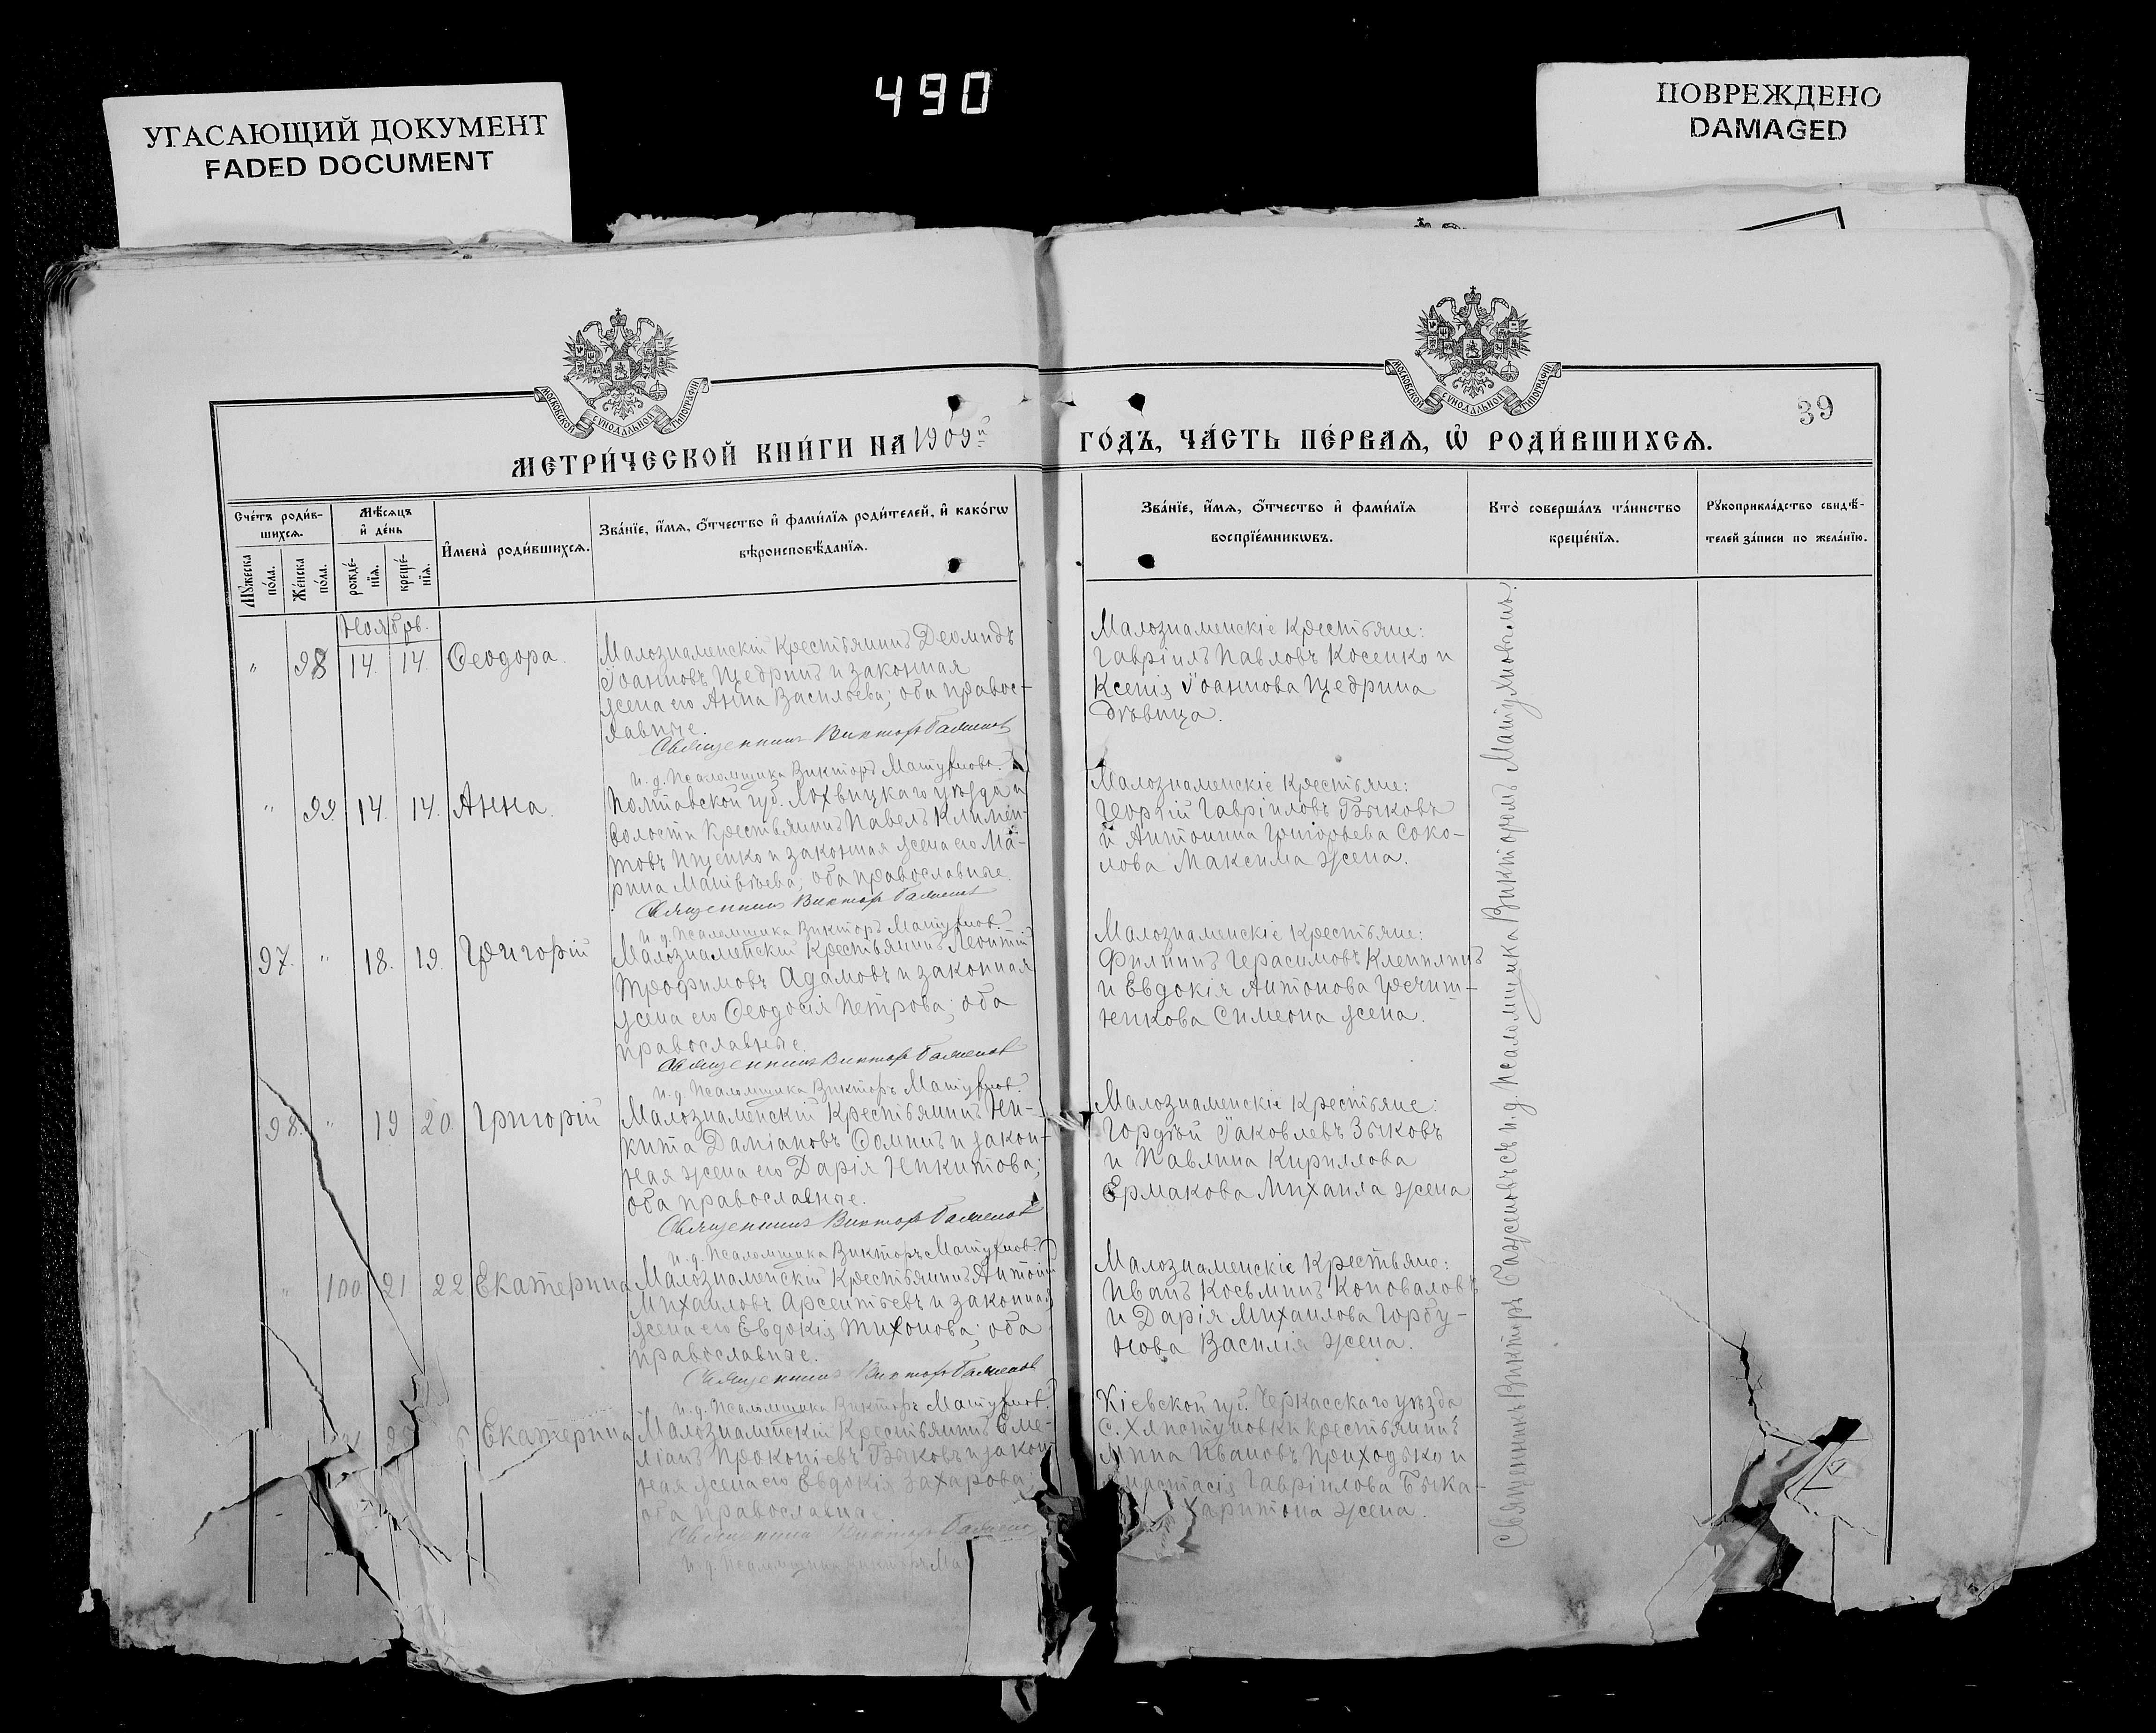 490
УГАСАЮЩИЙ ДОКУМЕНТ
FADED DOCUMENT
ПОВРЕЖДЕНО
DAMAGED
МОСКОВСКОЙ СѴНОДАЛЬНОЙ ТИПОГРАФІИ
МОСКОВСКОЙ СѴНОДАЛЬНОЙ ТИПОГРАФІИ
39
МЕТРИ́ЧЕСКОЙ КНИ́ГИ НА 1909й
ГО́ДЪ, ЧА́СТЬ ПЕ́РВАѦ, Ѡ҆ РОДИ́ВШИХСѦ.
Сче́тъ роди́в-
шихсѧ.
Мꙋ́жеска по́ла.
Же́нска по́ла.
Мѣ́сѧцъ
и҆ де́нь
рожде́-
нїѧ.
креще́-
нїѧ.
И҆мена̀ роди́вшихсѧ.
Зва́нїе, и҆́мѧ, ѻ҆́тчество и҆ фами́лїѧ роди́телей, и҆ како́гѡ
вѣроисповѣ́данїѧ.
Зва́нїе, и҆́мѧ, ѻ҆́тчество и҆ фами́лїѧ
воспрїе́мникѡвъ.
Кто̀ соверша́лъ та́инство
креще́нїѧ.
Рꙋкоприкла́дство свидѣ́-
телей за́писи по жела́нїю.
Ноябрь.
" 98 14. 14. Ѳеодора.
Малознаменскій крестьянинъ Деомидъ
Іоанновъ Щедринъ и законная
жена его Анна Васильева; оба правос-
лавные.
Священникъ Викторъ Баженовъ
И. д. Псаломщика Викторъ Матухновъ.
Малознаменскіе крестьяне:
Гавріилъ Павловъ Косенко и
Ксенія Іоаннова Щедрина
дѣвица.
" 99 14. 14. Анна.
Полтавской губ. Лохвицкаго уѣзда и
волости крестьянинъ Павелъ Климен-
товъ Ищенко и законная жена его Ма-
рина Матвѣева; оба православные.
Священникъ Викторъ Баженовъ
И. д. Псаломщика Викторъ Матухновъ.
Малознаменскіе крестьяне:
Георгій Гавріиловъ Быковъ
и Антонина Григорьева Соко-
лова Максима жена.
97. " 18. 19. Григорій
Малознаменскій крестьянинъ Леонтій
Трофимовъ Адамовъ и законная
жена его Ѳеодосія Петрова; оба
православные.
Священникъ Викторъ Баженовъ
И. д. Псаломщика Викторъ Матухновъ.
Малознаменскіе крестьяне:
Филиппъ Герасимовъ Клепилинъ
и Евдокія Антонова Гречиш-
никова Симеона жена.
98. " 19 20. Григорій
Малознаменскій крестьянинъ Ни-
кита Даміановъ Ѳоминъ и закон-
ная жена его Дарія Никитова;
оба православные.
Священникъ Викторъ Баженовъ
И. д. Псаломщика Викторъ Матухновъ.
Малознаменскіе крестьяне:
Гордѣй Іаковлевъ Зыковъ
и Павлина Кириллова
Ермакова Михаила жена
" 100. 21 22 Екатерина
Малознаменскій крестьянинъ Антоній
Михаиловъ Арсентьевъ и законная
жена его Евдокія Тихонова; оба
православные.
Священникъ Викторъ Баженовъ
И. д. Псаломщика Викторъ Матухновъ.
Малознаменскіе крестьяне:
Иванъ Косьминъ Коноваловъ
и Дарія Михаилова Горбу-
нова Василія жена.
Екатерина
Малознаменскій крестьянинъ Еме-
ліанъ Прокопіевъ Быковъ и закон
ная жена его Евдокія Захарова;
оба православные.
Священникъ Викторъ Баженовъ
И. д. Псаломщика Викторъ Ма
Кіевской губ. Черкасскаго уѣзда
с. Хлистуновки крестьянинъ
Мина Ивановъ Приходько и
Анастасія Гавріилова Быка-
Харитона жена.
Священникъ Викторъ Баженовъ съ и. д. псаломщика Викторомъ Матухновымъ.